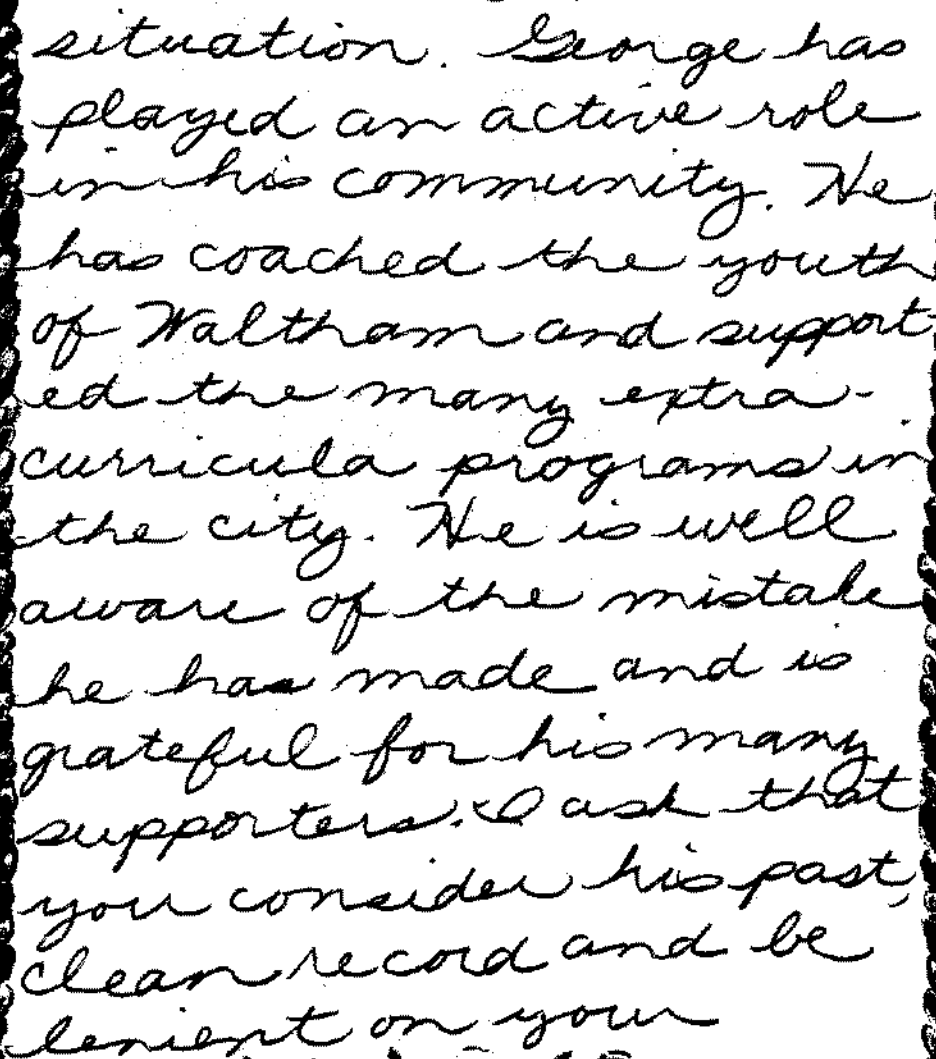 situation. George has
played an active role
in his community. He
has coached the youth
of Waltham and support-
ed the many extra-
curricula programs in
the city. He is well
aware of the mistake
he has made and is
grateful for his many
supporters. I ask that
you consider his past,
clean record and be
lenient on your